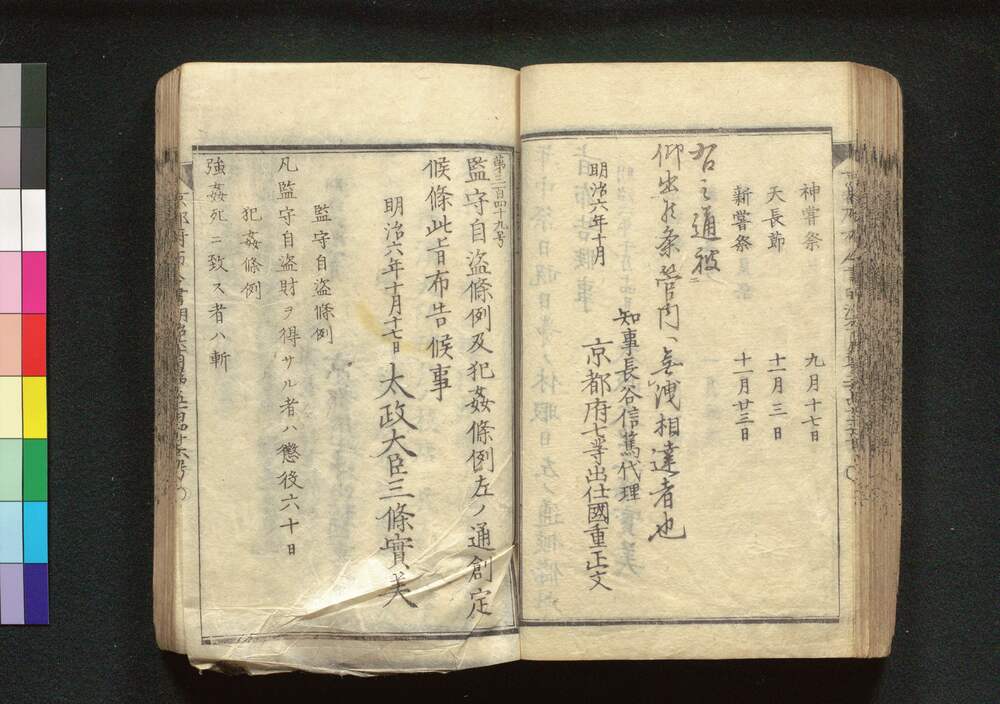 神嘗祭 九月十七日
天長節 十一月三日
新嘗祭 十一月廿三日
右之通被
仰出候条管内ヘ無洩相達者也
明治六年十月
知事長谷信篤代理
京都府七等出仕國重正文
第三百四十九号
監守自盗條例及犯姦條例左ノ通創定
候條此旨布告候事
明治六年十月十七日 太政大臣三條實美
監守自盗條例
凡監守自盗財ヲ得サル者ハ懲役六十日
犯姦條例
強姦死ニ致ス者ハ斬